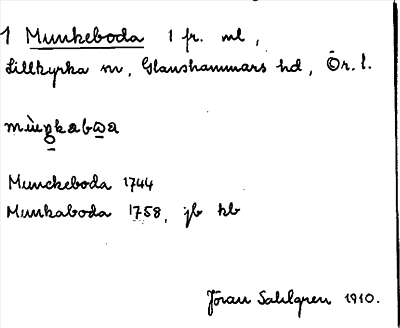 1 Munkeboda 1 fr. ml,
Lillkyrka sn, Glanshammars hd, Ör. l.
Munckeboda 1744
Munkaboda 1758, jb kb
Jöran Sahlgren 1910.